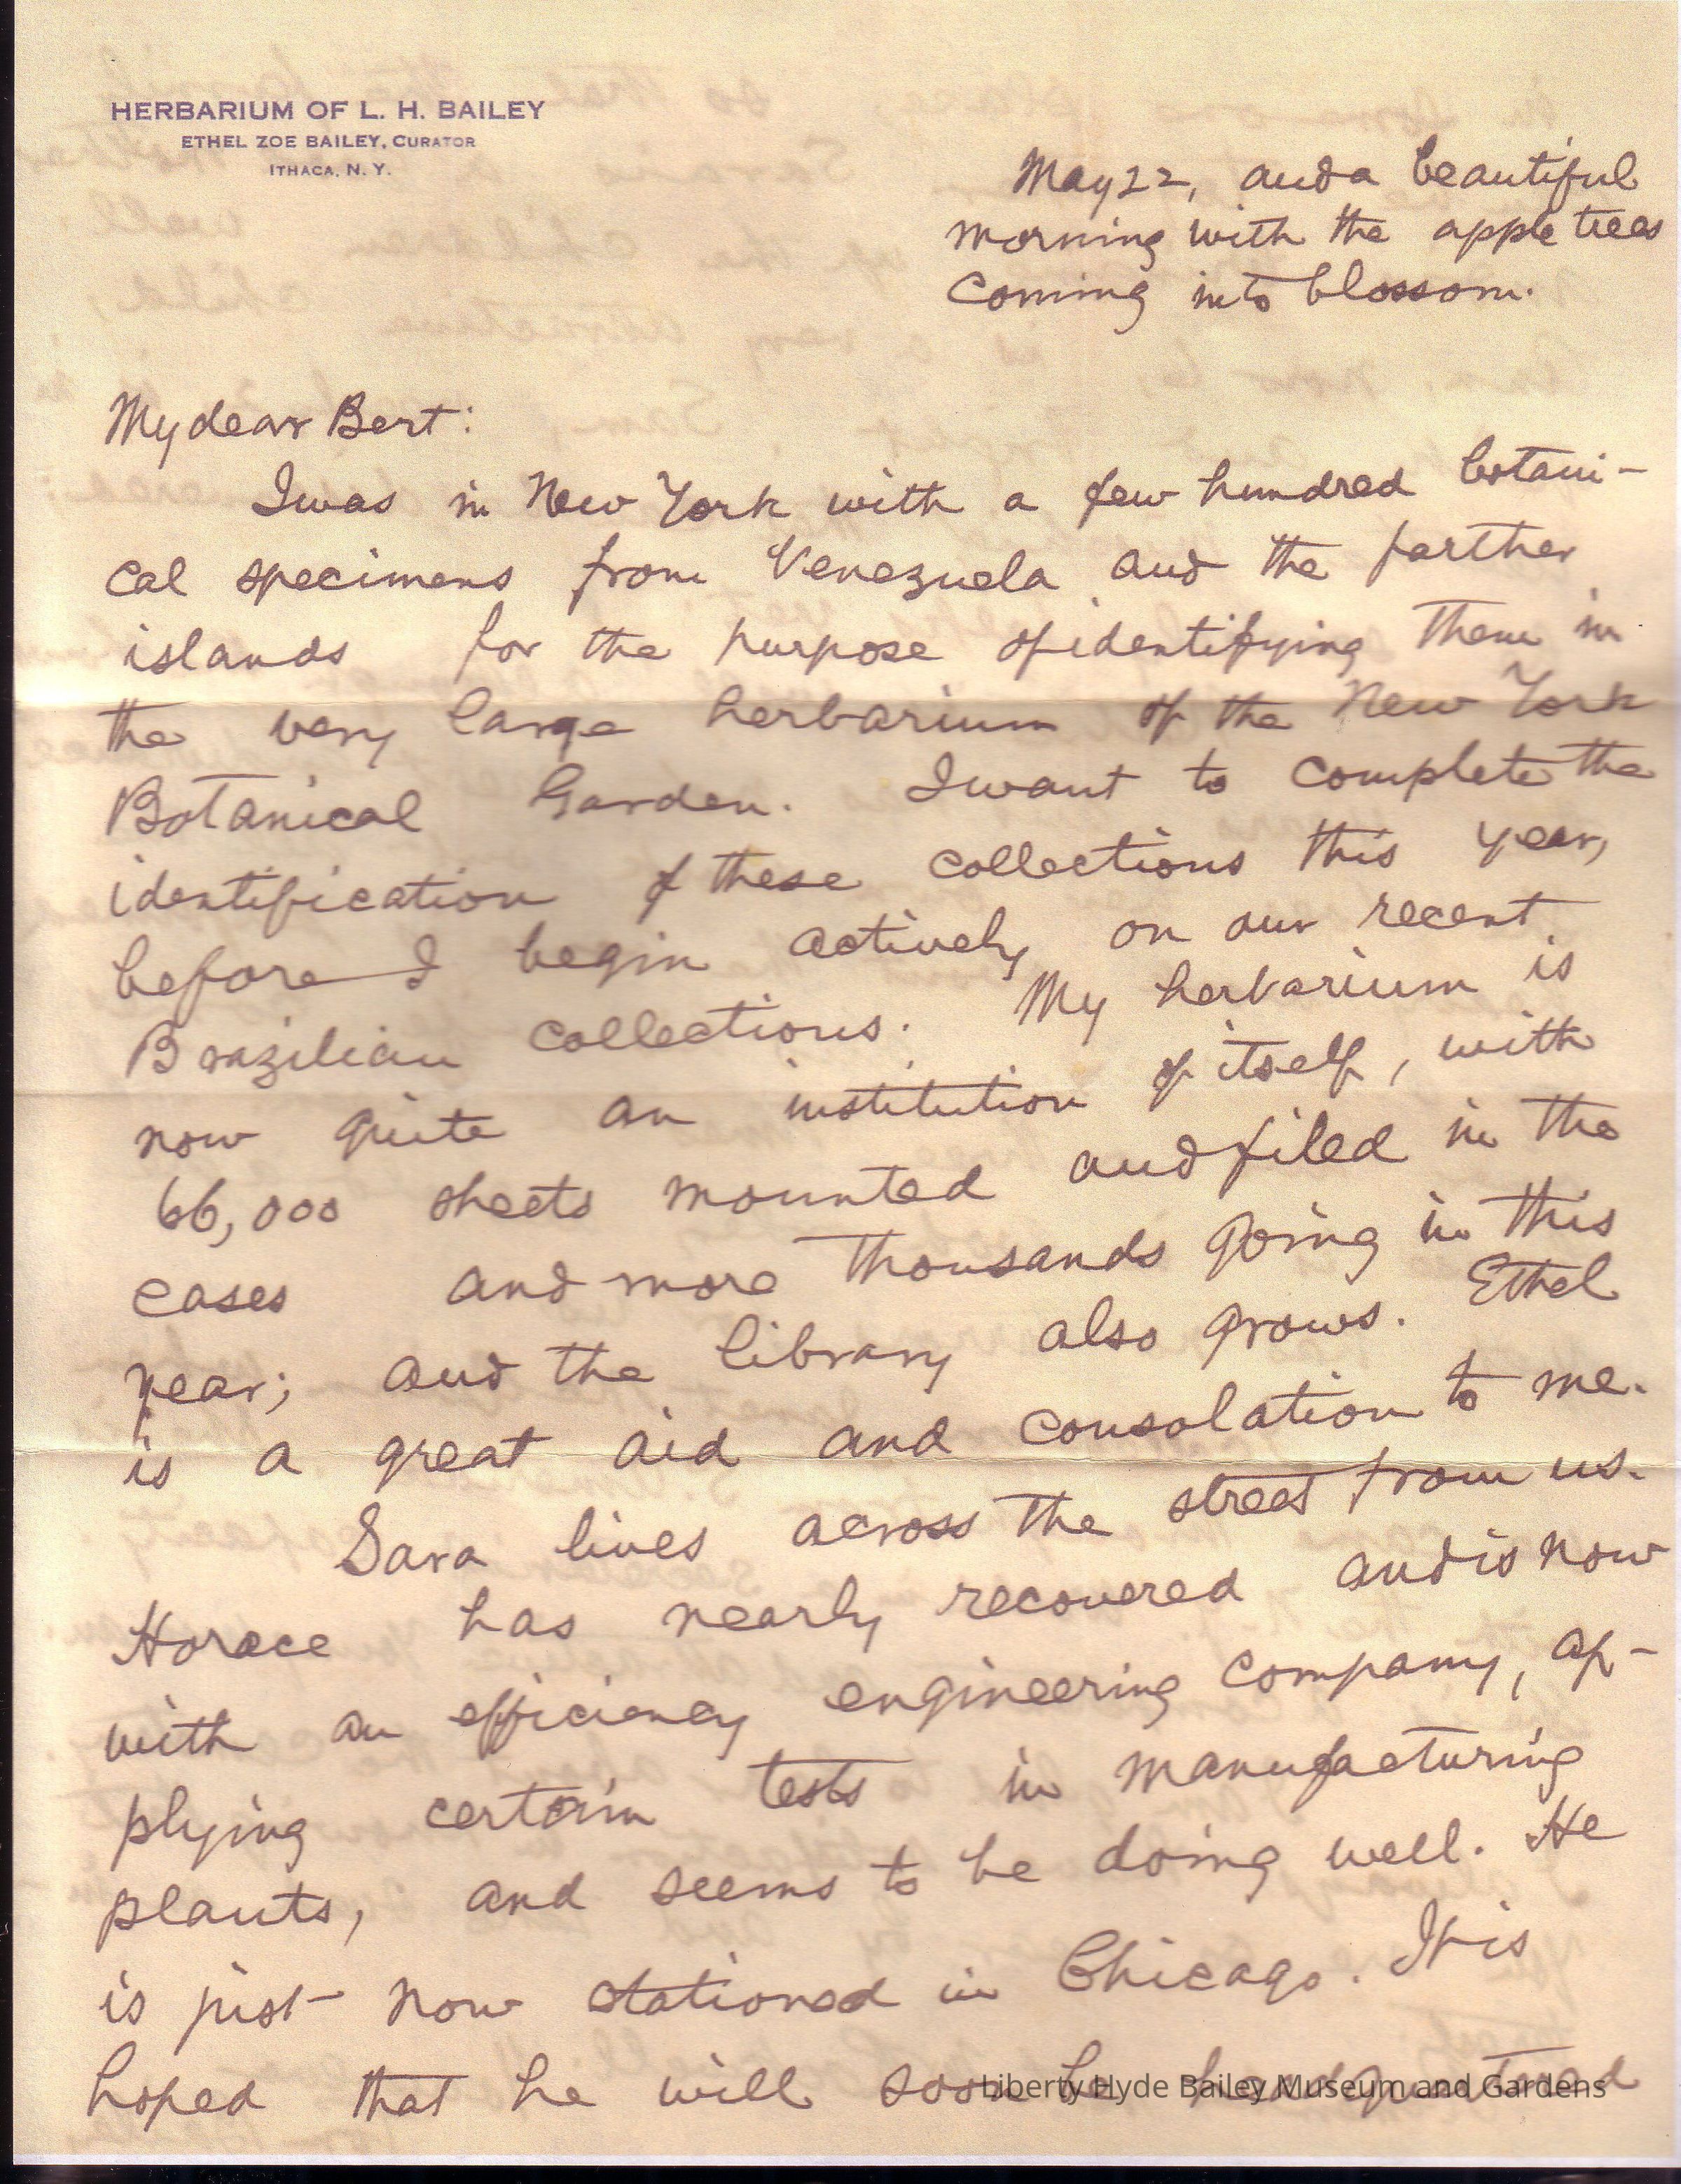 HERBARIUM OF L. H. BAILEY
ETHEL ZOE BAILEY, CURATOR
ITHACA, N. Y.
May 22, and a beautiful
morning with the apple trees
coming into blossom.
My dear Bert:
I was in New York with a few hundred botani-
cal specimens from Venezuela and the farther
islands for the purpose of identifying them in
the very large herbarium of the New York
Botanical Garden. I want to complete the
identification of these collections this year,
before I begin actively on our recent
Brazilian collections. My herbarium is
now quite an institution of itself, with
66,000 sheets mounted and filed in the
cases and more thousands going in this
year; and the library also grows. Ethel
is a great aid and consolation to me.
Sara lives across the street from us.
Horace has nearly recovered and is now
with an efficiency engineering company, ap-
plying certain tests in manufacturing
plants, and seems to be doing well. He
is just now stationed in Chicago. It is
hoped that he will soon be headquartered
Liberty Hyde Bailey Museum and Gardens